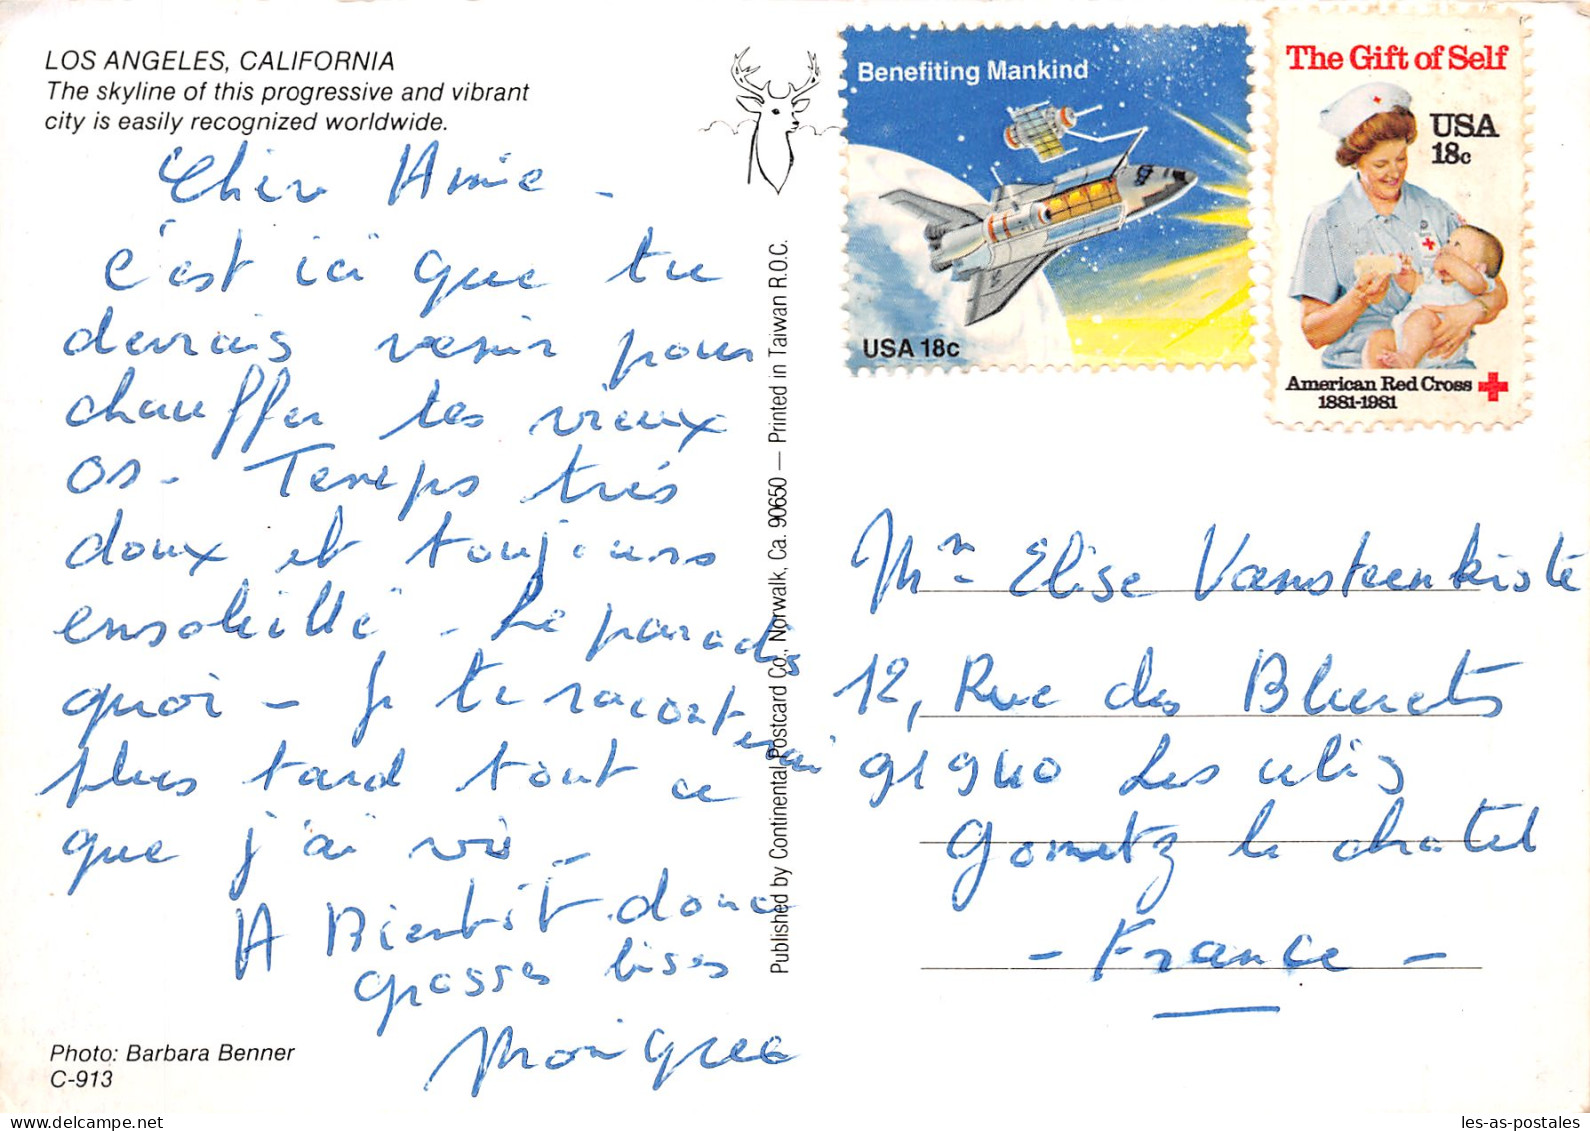 LOS ANGELES, CALIFORNIA
The skyline of this progressive and vibrant
city is easily recognized worldwide.
Chère Amie -
c'est ici que tu
devrais venir pour
chauffer tes vieux
os - Temps très
doux et toujours
ensoleillé - Le paradis
quoi - Je te raconterai
plus tard tout ce
que j'ai vu -
A Bientôt donc
grosses bises
Monique
Photo: Barbara Benner
C-913
Published by Continental Postcard Co., Norwalk, Ca. 90650 — Printed in Taiwan R.O.C.
Benefiting Mankind
USA 18c
The Gift of Self
USA
18c
American Red Cross
1881-1981
Mme Elise Vansteenkiste
12, Rue des Bleuets
91940 Les Ulis
Gometz le chatel
- France -
les-as-postales